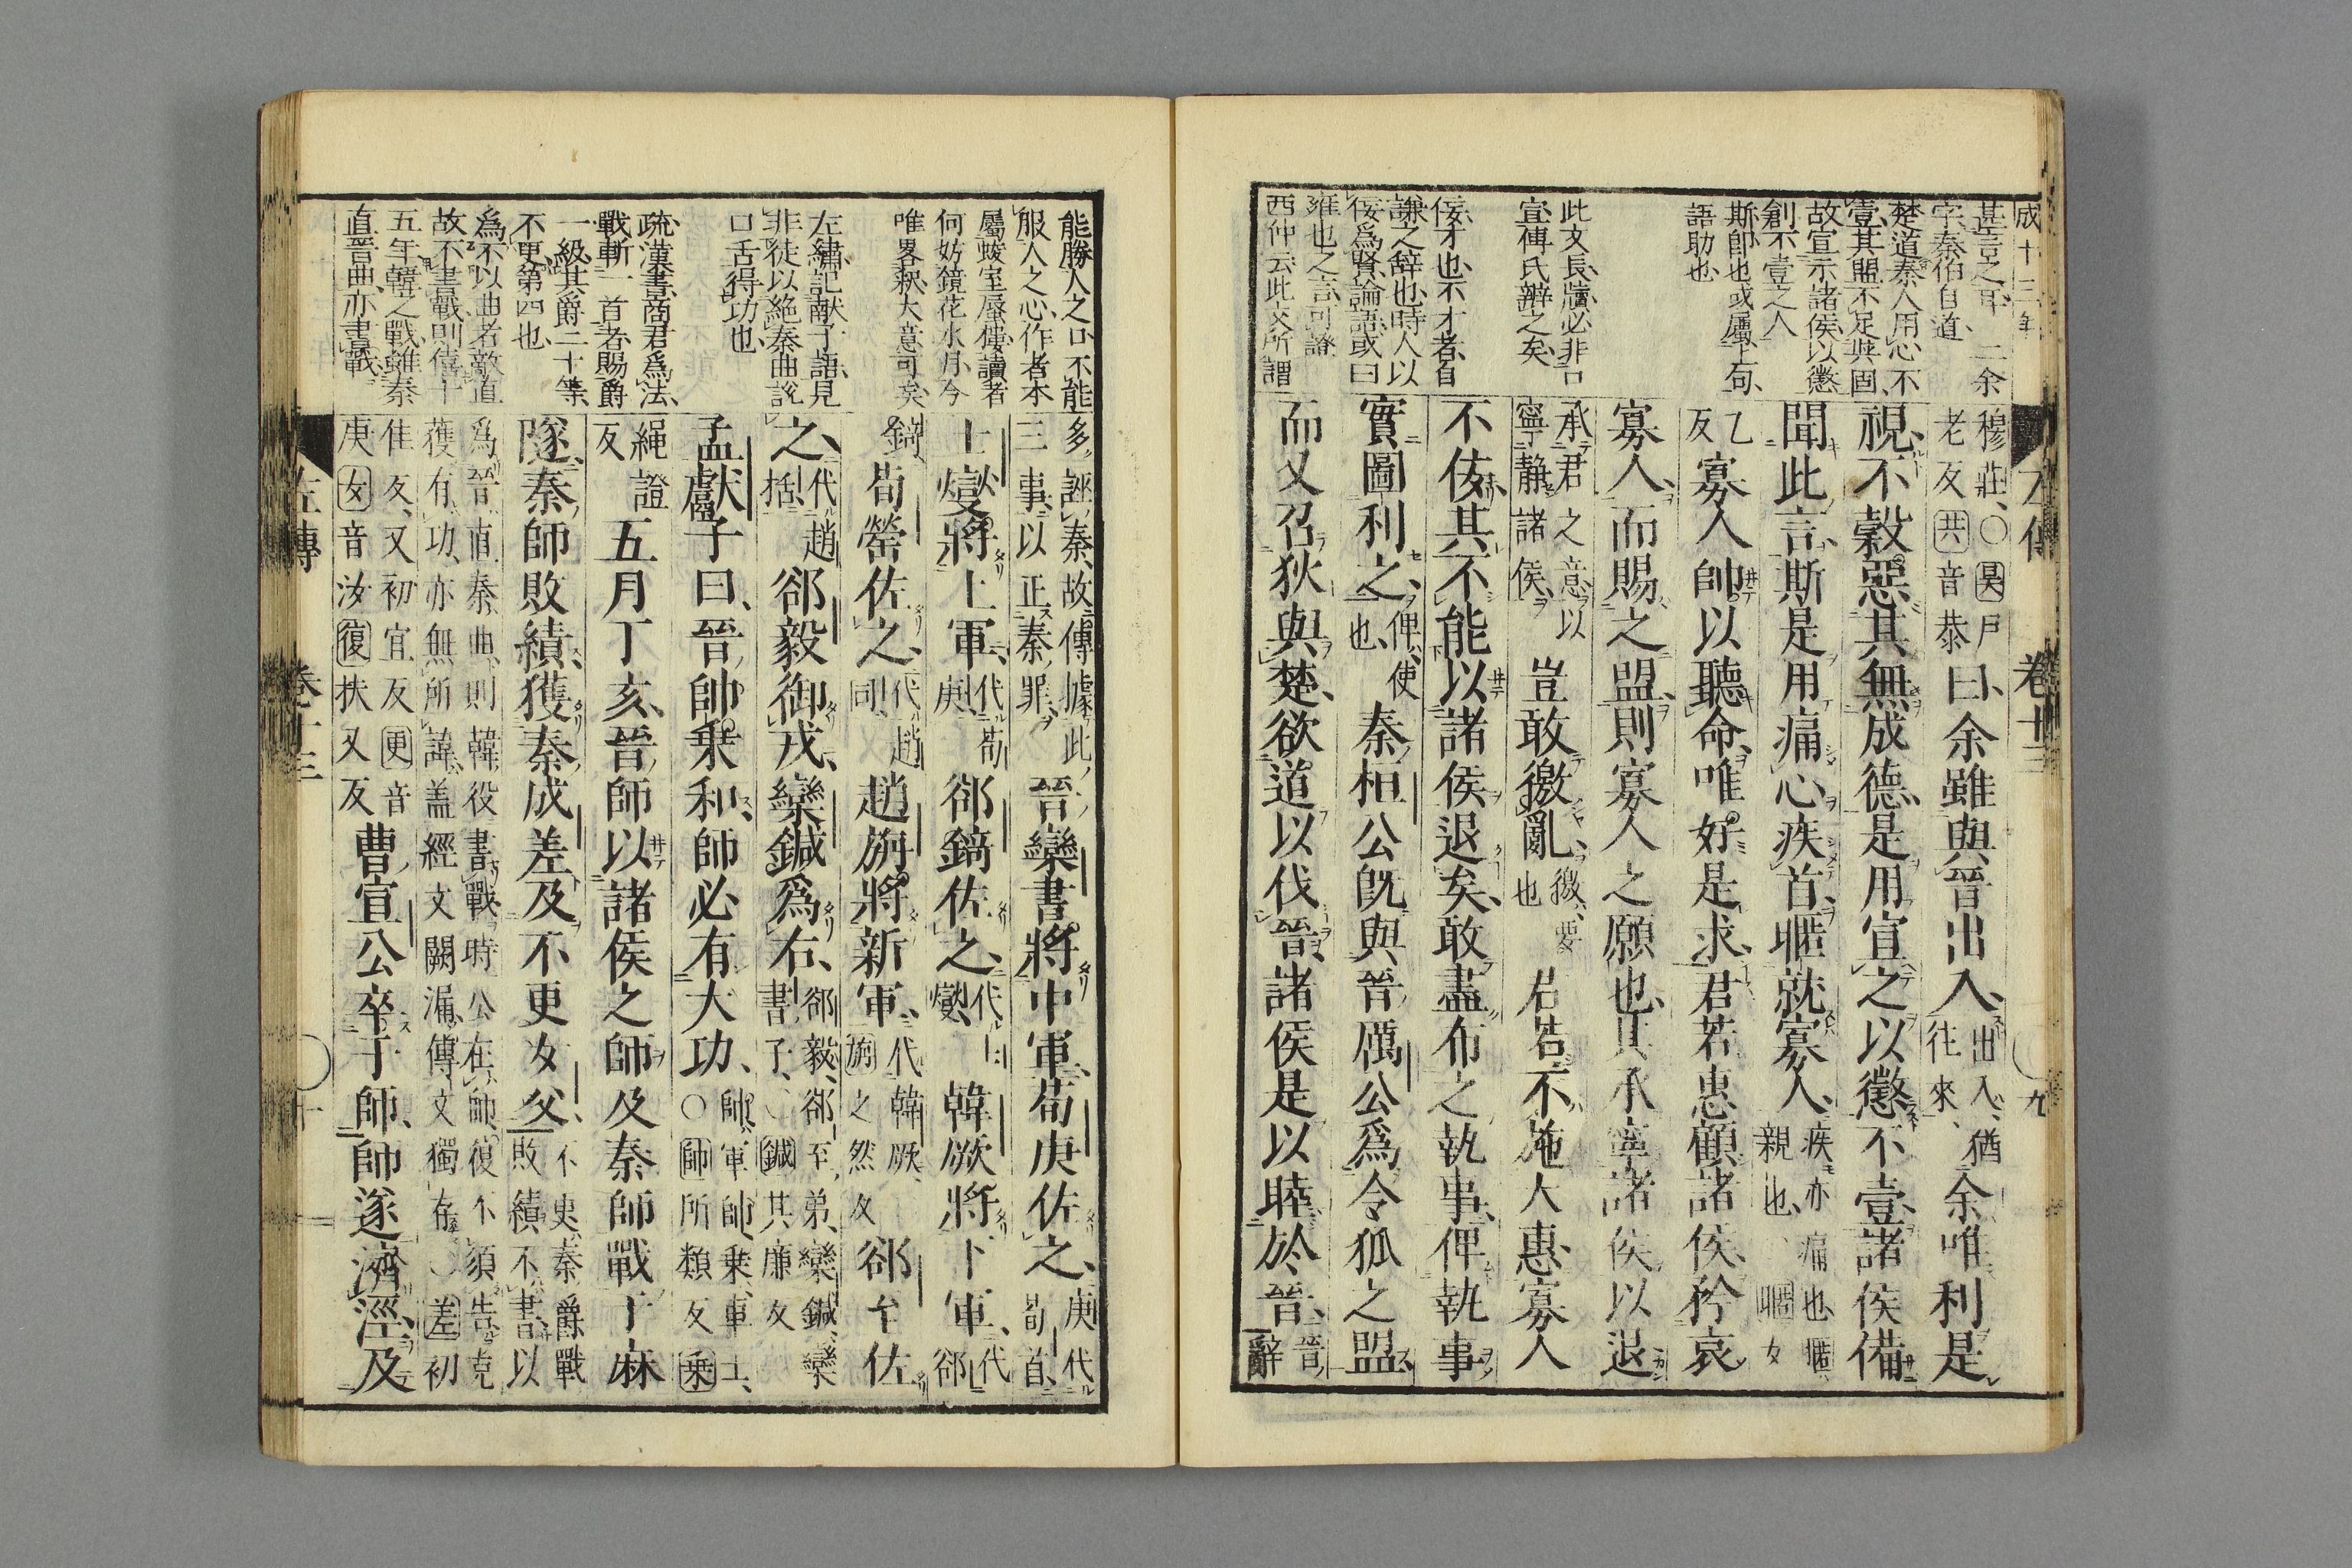 成十三年
甚言之耳、二余
字、秦伯自道
楚道秦人用心不
壹、其盟不足與固、
故宣示諸侯以懲
創不壹之人
斯、即也、或屬上句、
語助也、
此文長牘必非口
宣、傅氏辨之矣、
佞、才也、不才者、自
謙之辭也、時人以
佞爲賢、論語、或曰
雍也之言可證
西仲云此文所謂
左傳 卷十三 九
穆莊、○昊戶
老反共音恭
曰、余雖與晉出入、
出入、猶
往來、
余唯利是
視、不穀惡其無成德、是用宣之以懲不壹、諸侯備
聞此言、斯是用痛心疾首、暱就寡人、
疾、亦痛也、暱、
親也、暱女
乙
反
寡人帥以聽命、唯好是求、君若惠顧諸侯、矜哀
寡人、而賜之盟、則寡人之願也、其承寧諸侯以退
承君之意以
寧靜諸侯、
豈敢徼亂、
徼、要
也
君若不施大惠、寡人
不佞、其不能以諸侯退矣、敢盡布之執事、俾執事
實圖利之、
俾、使
也、
秦桓公既與晉厲公爲令狐之盟、
而又召狄與楚、欲道以伐晉、諸侯是以睦於晉、
晉、
辭
能勝人之口不能
服人之心、作者本
屬蜃室蜃樓、讀者
何妨鏡花水月、今
唯畧釈大意可矣、
左繡、記献子語、見
非徒以絶秦曲說
口舌得功也、
疏、漢書、商君爲法、
戰斬一首者、賜爵
一級、其爵二十等、
不更第四也、
爲不以曲者敵直
故不書戰、則僖十
五年韓之戰、雖秦
直晉曲、亦書戰、
多誣秦、故傳據此
三事、以正秦罪、
晉欒書將中軍、荀庚佐之、
庚代
荀首、
士燮將上軍、
代荀
庚、
郤錡佐之、
代士
燮、
韓厥將下軍、
代
郤
錡、
荀罃佐之、
代趙
同、
趙旃將新軍、
代韓厥、
旃之然反
郤至佐
之、
代趙
括、
郤毅御戎、欒鍼爲右、
郤毅、郤至弟、欒鍼、欒
書子、○鍼其廉反
孟獻子曰、晉帥乘和、師必有大功、
帥、軍帥、乘、車士、
○帥所類反乘
繩證
反
五月丁亥、晉師以諸侯之師及秦師戰于麻
隧、秦師敗績、獲秦成差及不更女父、
不更、秦爵、戰
敗績不書、以
爲晉直秦曲、則韓役書戰、時公在師、復不須告、克
獲有功、亦無所諱、盖經文闕漏、傳文獨存、○差初
隹反、又初宜反更音
庚女音汝復扶又反
曹宣公卒于師、師遂濟涇、及
左傳 卷十三 十